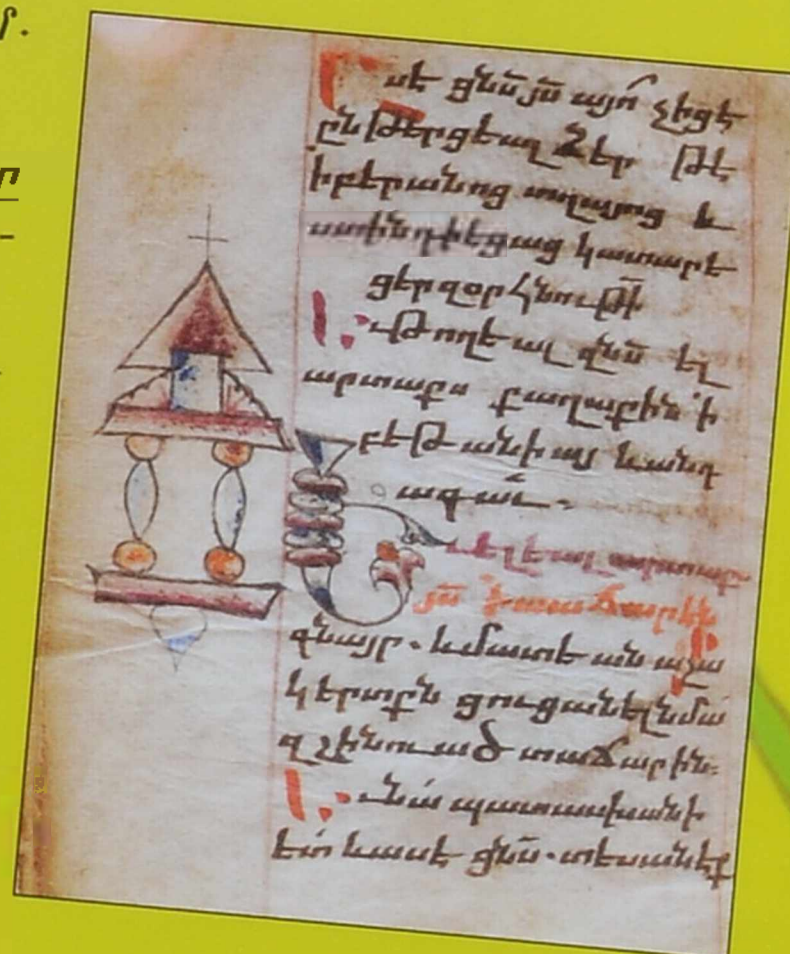 Ասէ ցնս յս այո՛ չիցէ
ընթերցեալ ձեր թէ
ի բերանոց տղայոց և
կատարե
ցեր զօրհնութի
Ե. ւ թողեալ զնս ել
արտաքս քաղաքին ի
բեթանիայ և անդ
ագաւ.
Ե ւ ելեալ
յս ի տաճարէն
գնայր. և մատեան աշա
կերտքն ցուցանել նմա
զշինուած տաճարին.
Ե. ւ նա պատասխանի
ետ և ասէ ցնս. տեսանէք